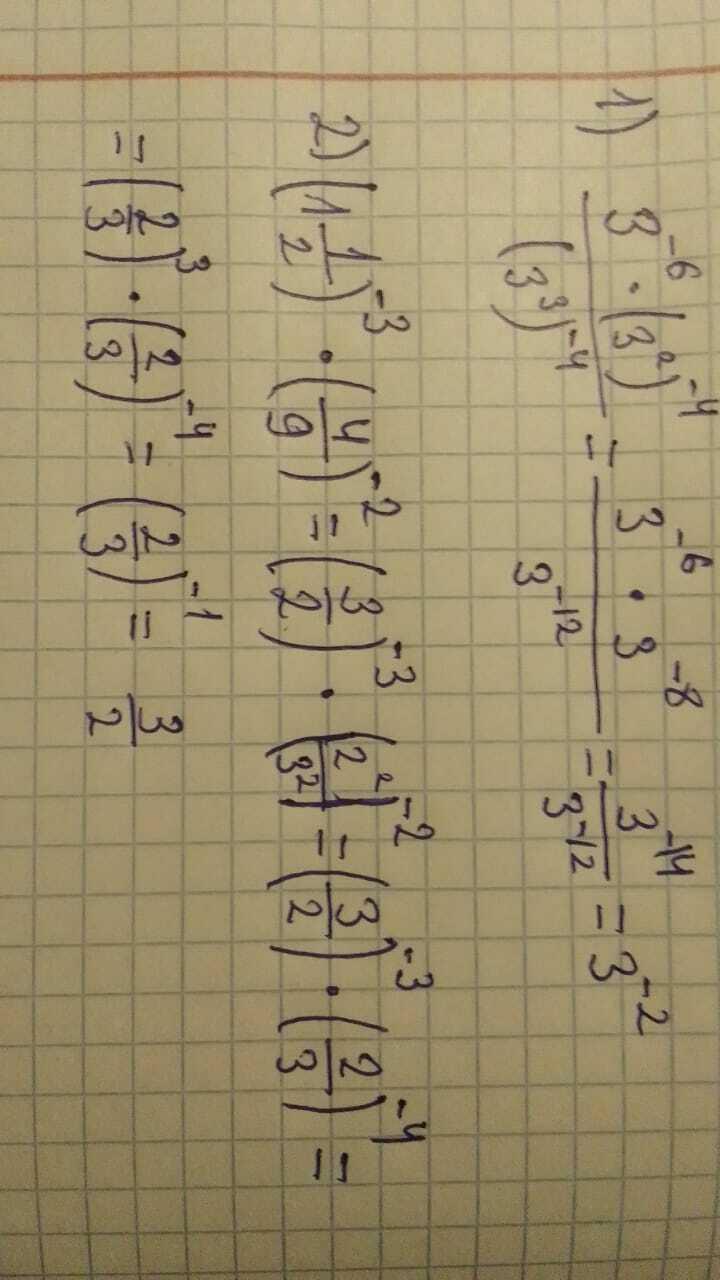 1) \frac{3^{-6} \cdot (3^2)^{-4}}{(3^3)^{-4}} = \frac{3^{-6} \cdot 3^{-8}}{3^{-12}} = \frac{3^{-14}}{3^{-12}} = 3^{-2}
2) (1\frac{1}{2})^{-3} \cdot (\frac{4}{9})^{-2} = (\frac{3}{2})^{-3} \cdot (\frac{2^2}{3^2})^{-2} = (\frac{3}{2})^{-3} \cdot (\frac{2}{3})^{-4} =
= (\frac{2}{3})^3 \cdot (\frac{2}{3})^{-4} = (\frac{2}{3})^{-1} = \frac{3}{2}